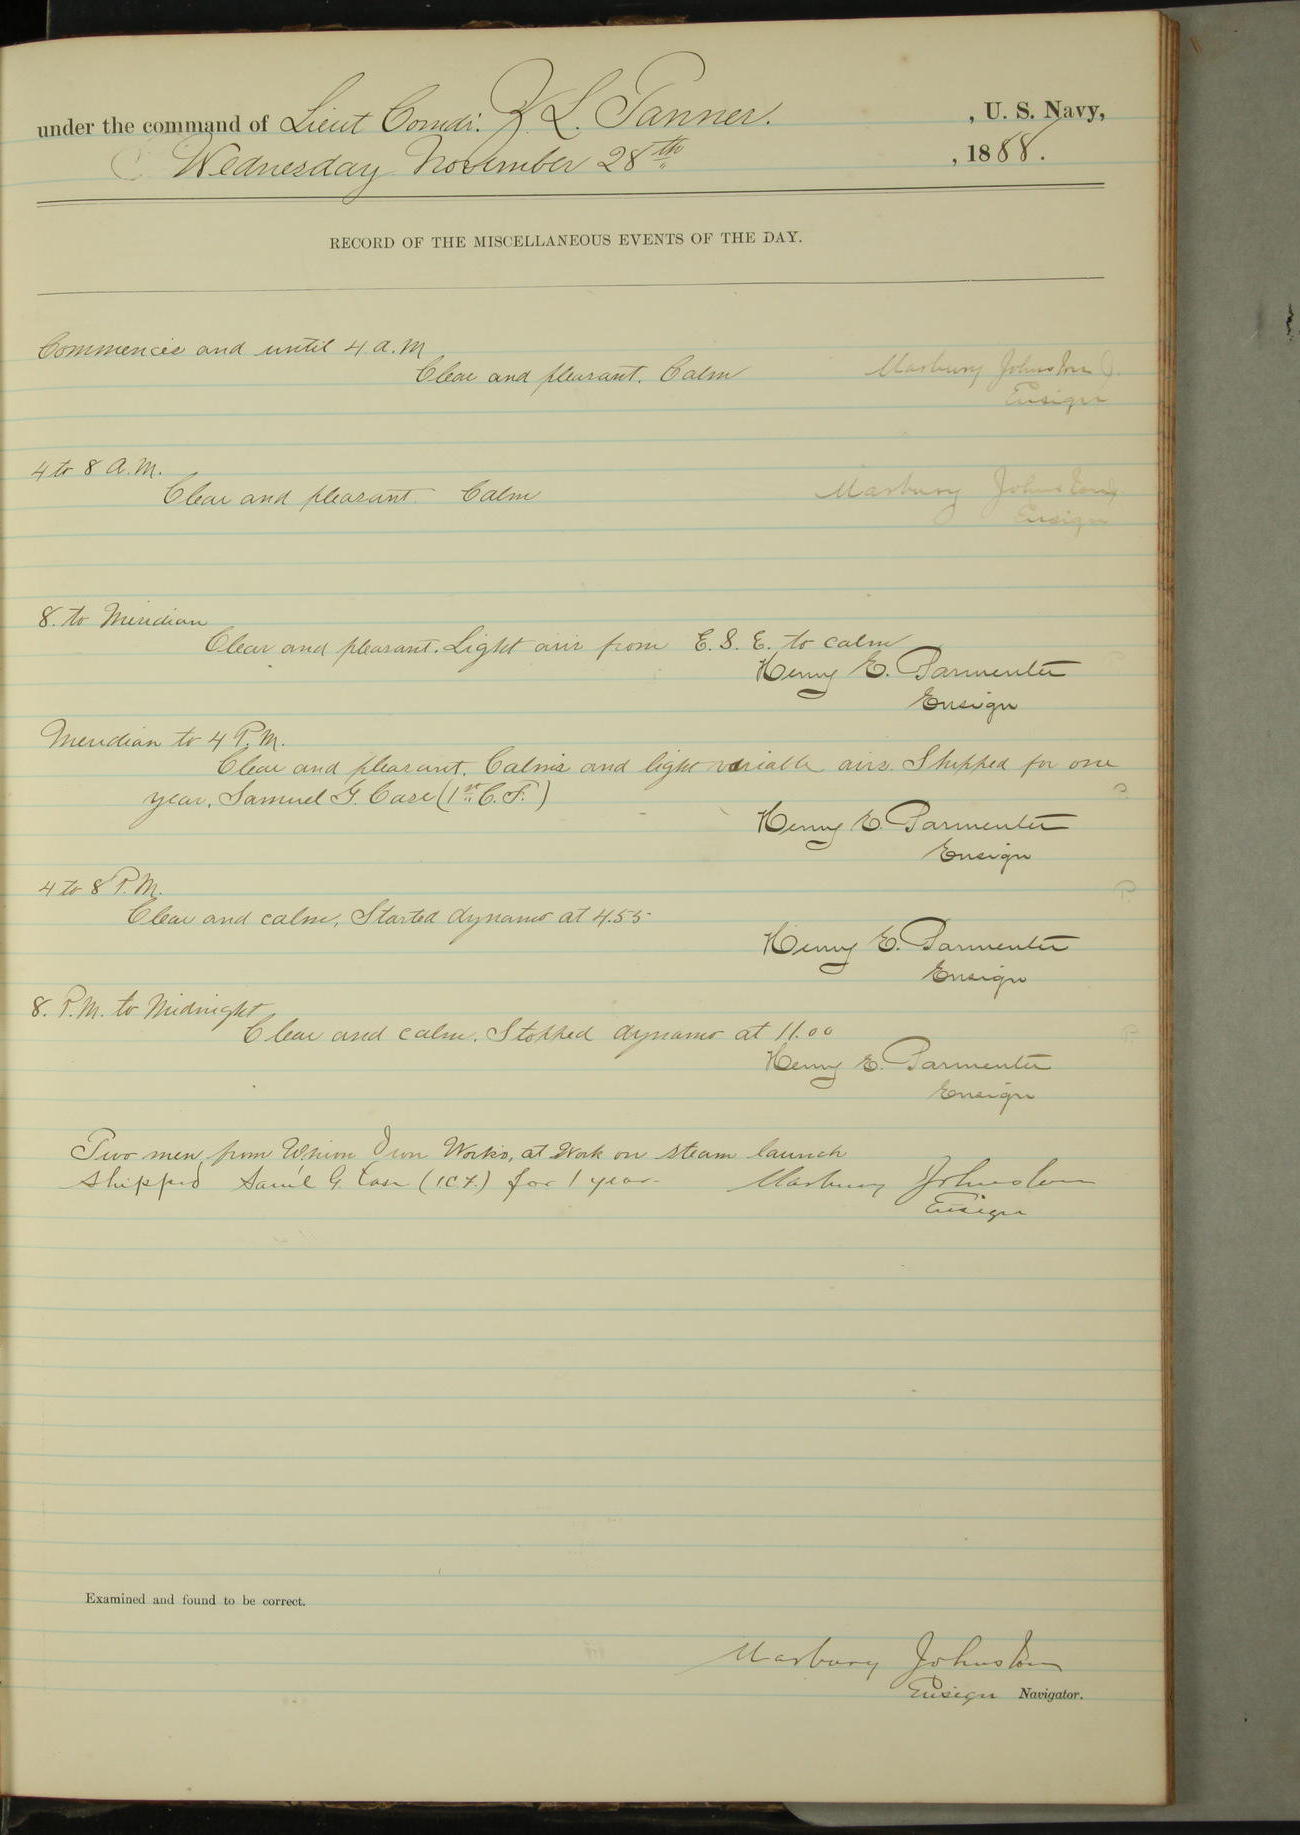 under the command of Lieut Comdr. Z. L. Tanner. , U. S. Navy,
Wednesday November 28th , 1888.
RECORD OF THE MISCELLANEOUS EVENTS OF THE DAY.
Commences and until 4 A.M
Clear and pleasant. Calm Marbury Johnston
Ensign
4 to 8 A.M.
Clear and pleasant Calm Marbury Johnston
Ensign
8. to Meridian
Clear and pleasant. Light airs from E. S. E. to calm
Henry E. Parmenter
Ensign
Meridian to 4 P.M.
Clear and pleasant. Calms and light variable airs. Shipped for one
year, Samuel G. Case (1st C. F.)
Henry E. Parmenter
Ensign
4 to 8 P.M.
Clear and calm, Started dynamo at 4.55
Henry E. Parmenter
Ensign
8. P.M. to Midnight
Clear and calm. Stopped dynamo at 11.00
Henry E. Parmenter
Ensign
Two men from Union Iron Works, at Work on steam launch
Shipped Sam'l G. Case (1C.F.) for 1 year. Marbury Johnston
Ensign
Examined and found to be correct.
Marbury Johnston
Ensign Navigator.